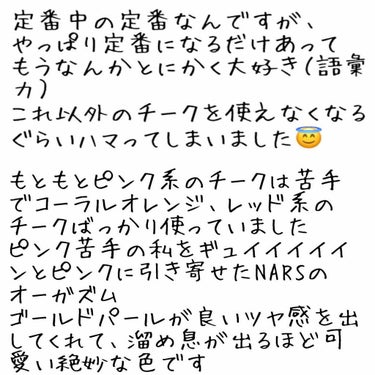 定番中の定番なんですが、
やっぱり定番になるだけあって
もうなんかとにかく大好き(語彙
力)
これ以外のチークを使えなくなる
ぐらいハマってしまいました😇
もともとピンク系のチークは苦手
でコーラルオレンジ、レッド系の
チークばっかり使っていました
ピンク苦手の私をギュイイイイイ
ンとピンクに引き寄せたNARSの
オーガズム
ゴールドパールが良いツヤ感を出
してくれて、溜め息が出るほど可
愛い絶妙な色です